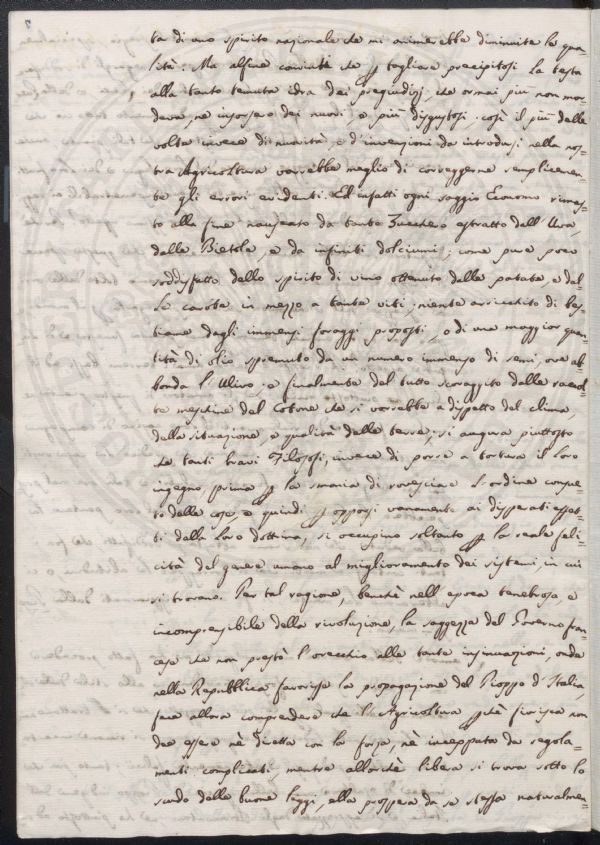 ta di uno spirito nazionale che mi animerebbe diminuite le qua-
lità: Ma alfine convinti che tagliare precipitosi la testa
alla tanto temuta idra dei pregiudizj, che ormai più non mor-
deva, ne insorsero dei nuovi, e più disgustosi, così il più delle
volte invece di novità, e d'invenzioni da introdursi nella nos-
tra Agricoltura vorrebbe meglio di correggerne semplicemen-
te gli errori evidenti. Ed infatti ogni saggio Economo rimas-
to alla fine nauseato da tanto Zucchero estratto dall'Uva,
dalle Bietole, e da infiniti dolciumi; come pure poco
soddisfatto dello spirito di vino ottenuto dalle patate, e dal-
le carote in mezzo a tante viti; niente arricchito di bes-
tiame dagli immensi foraggi proposti, o di una maggior quan-
tità di olio spremuto da un numero immenso di semi, ove ab-
bonda l'Ulivo; e finalmente del tutto scoraggito dalle raccol-
te meschine del Cotone che si vorrebbe a dispetto del clima,
della situazione, e qualità delle terre; si augura piuttosto
che tanti bravi Filosofi, invece di porre a tortura il loro
ingegno, prima la smania di rovesciare l'ordine consue-
to delle cose, e quindi opporsi vanamente ai disperati effet-
ti della loro dottrina, si occupino soltanto la reale feli-
cità del genere umano al miglioramento dei sistemi, in cui
si trovano. Per tal ragione, benchè nell'epoca tenebrosa, e
incomprensibile della rivoluzione, la saggezza del Governo fran-
cese che non prestò l'orecchio alle tante insinuazioni, onde
nella Repubblica favorisse la propagazione del Pioppo d'Italia,
fece allora comprendere che l'Agricoltura chè fiorisca non
dee essere nè diretta con la forza, nè inceppata da regola-
menti complicati, mentre allorchè libera si trova sotto lo
scudo delle buone leggi, ella prospera da se stessa naturalmen-